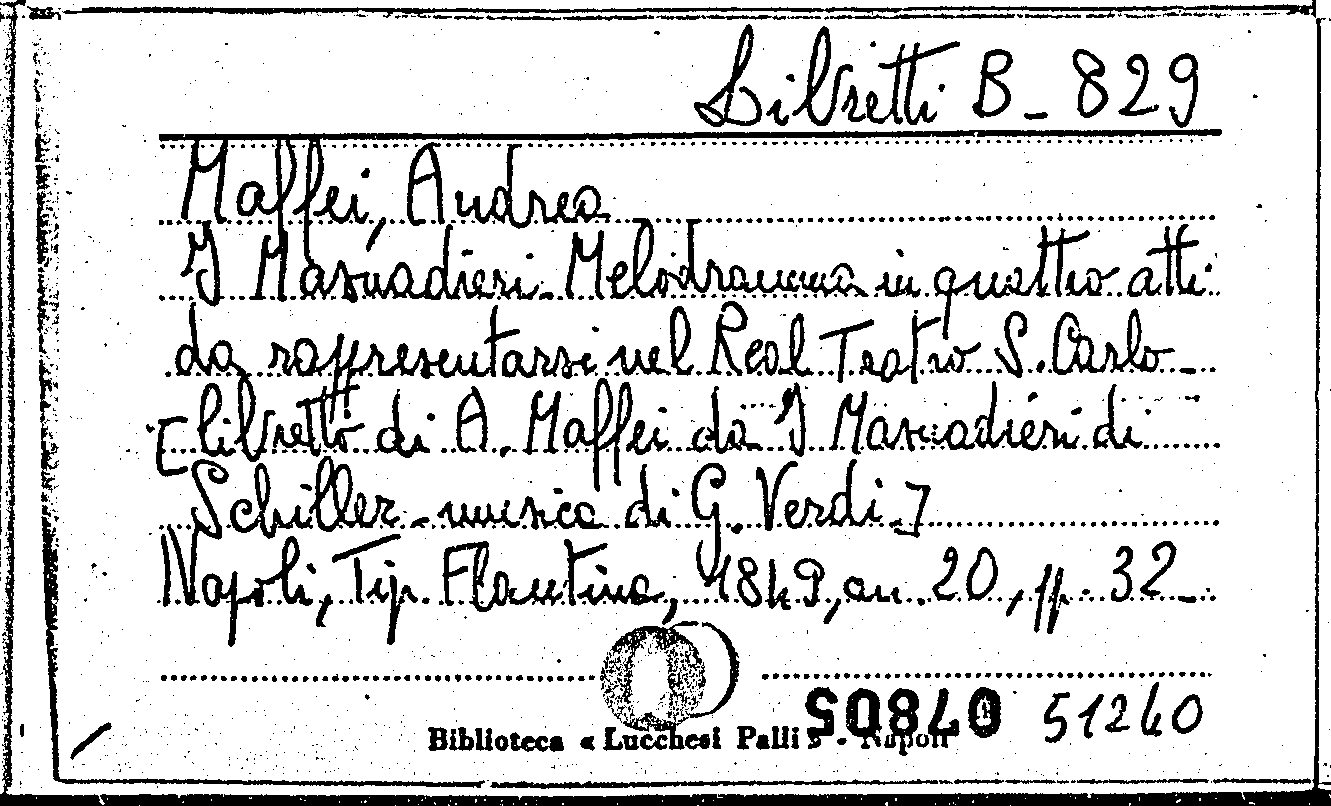 Libretti B - 829
Maffei, Andrea
I Masnadieri. Melodramma in quattro atti
da rappresentarsi nel Real Teatro S. Carlo -
[libretto di A. Maffei da I Masnadieri di
Schiller - musica di G. Verdi -]
Napoli, Tip. Flautina, 1849, in 20, pp. 32 -
07805 51240
Biblioteca « Lucchesi Palli » - Napoli